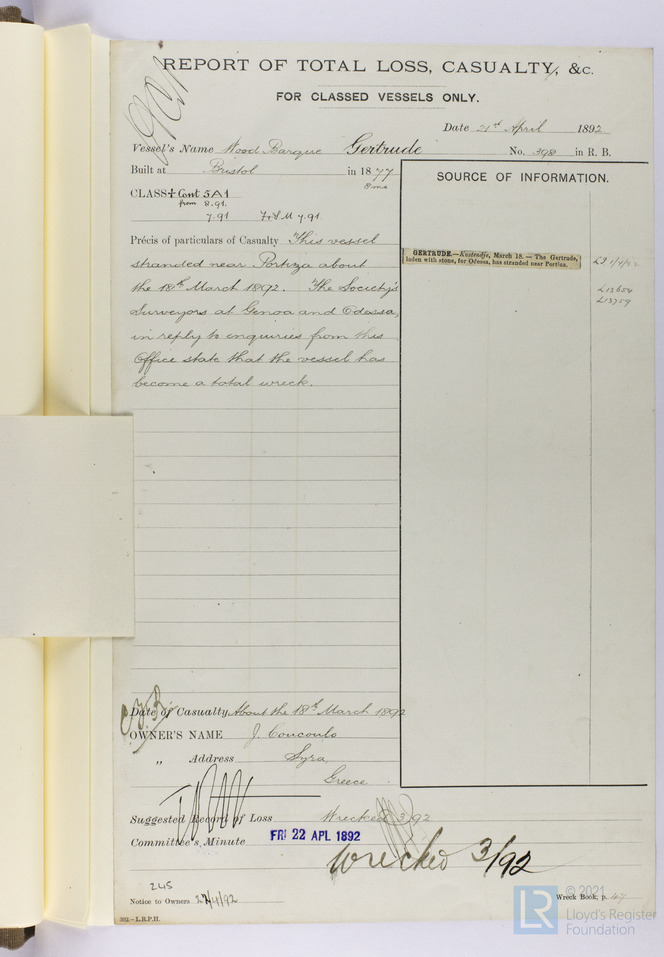 REPORT OF TOTAL LOSS, CASUALTY, &c.
FOR CLASSED VESSELS ONLY.
Date 21st April 1892
Vessel's Name Wood Barque Gertrude No. 398 in R. B.
Built at Bristol in 1877
8 mo
CLASS + Cont 5A1
from 8.91.
7.91 7.91
SOURCE OF INFORMATION.
Précis of particulars of Casualty This vessel
stranded near Portiza about
the 18th March 1892. The Society's
Surveyors at Genoa and Odessa,
in reply to enquiries from this
Office state that the vessel has
become a total wreck.
GERTRUDE.—Kustendje, March 18.—The Gertrude,
laden with stone, for Odessa, has stranded near Portiza.
L13654
L13759
Date of Casualty About the 18th March 1892
OWNER'S NAME J. Coucoulo
„ Address Syra
Greece
Suggested Record of Loss Wrecked 3/92
Committee's Minute FRI 22 APL 1892
Wrecked 3/92
245
Notice to Owners 22/4/92
Wreck Book, p. 147
302.—L.R.P.H.
LR
© 2021
Lloyd's Register
Foundation